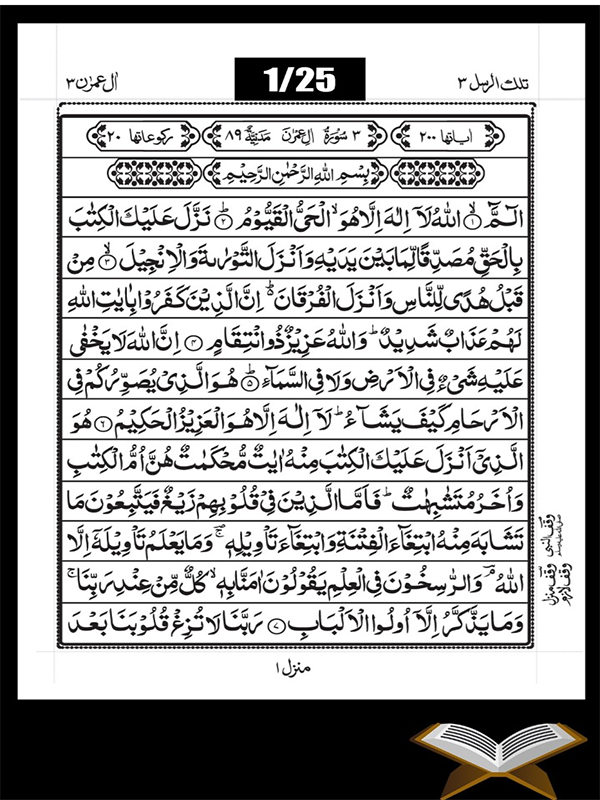 تلك الرسل ۳
1/25
اٰل عمرٰن ۳
اٰیاتها ۲۰۰
۳ سُوْرَةُ اٰلِ عِمْرٰنَ مَدَنِیَّةٌ ۸۹
ركوعاتها ۲۰
بِسْمِ اللّٰهِ الرَّحْمٰنِ الرَّحِیْمِ
الٓمَّٓ ۙ‏﴿۱﴾ اللّٰهُ لَاۤ اِلٰهَ اِلَّا هُوَ ۙ الْحَیُّ الْقَیُّوْمُ ؕ‏﴿۲﴾ نَزَّلَ عَلَیْكَ الْكِتٰبَ
بِالْحَقِّ مُصَدِّقًا لِّمَا بَیْنَ یَدَیْهِ وَاَنْزَلَ التَّوْرٰىةَ وَالْاِنْجِیْلَ ۙ‏﴿۳﴾ مِنْ
قَبْلُ هُدًی لِّلنَّاسِ وَاَنْزَلَ الْفُرْقَانَ ؕ اِنَّ الَّذِیْنَ كَفَرُوْا بِاٰیٰتِ اللّٰهِ
لَهُمْ عَذَابٌ شَدِیْدٌ ؕ وَاللّٰهُ عَزِیْزٌ ذُو انْتِقَامٍ ﴿۴﴾ اِنَّ اللّٰهَ لَا یَخْفٰی
عَلَیْهِ شَیْءٌ فِی الْاَرْضِ وَلَا فِی السَّمَآءِ ؕ‏﴿۵﴾ هُوَ الَّذِیْ یُصَوِّرُكُمْ فِی
الْاَرْحَامِ كَیْفَ یَشَآءُ ؕ لَاۤ اِلٰهَ اِلَّا هُوَ الْعَزِیْزُ الْحَكِیْمُ ﴿۶﴾ هُوَ
الَّذِیْۤ اَنْزَلَ عَلَیْكَ الْكِتٰبَ مِنْهُ اٰیٰتٌ مُّحْكَمٰتٌ هُنَّ اُمُّ الْكِتٰبِ
وَاُخَرُ مُتَشٰبِهٰتٌ ؕ فَاَمَّا الَّذِیْنَ فِیْ قُلُوْبِهِمْ زَیْغٌ فَیَتَّبِعُوْنَ مَا
تَشَابَهَ مِنْهُ ابْتِغَآءَ الْفِتْنَةِ وَابْتِغَآءَ تَاْوِیْلِهٖ ۚ وَمَا یَعْلَمُ تَاْوِیْلَهٗۤ اِلَّا
اللّٰهُ ۘ وَالرّٰسِخُوْنَ فِی الْعِلْمِ یَقُوْلُوْنَ اٰمَنَّا بِهٖ ۙ كُلٌّ مِّنْ عِنْدِ رَبِّنَا ۚ
وَمَا یَذَّكَّرُ اِلَّاۤ اُولُوا الْاَلْبَابِ ﴿۷﴾ رَبَّنَا لَا تُزِغْ قُلُوْبَنَا بَعْدَ
وقف النبی
وقف منزل
وقف لازم
منزل ۱